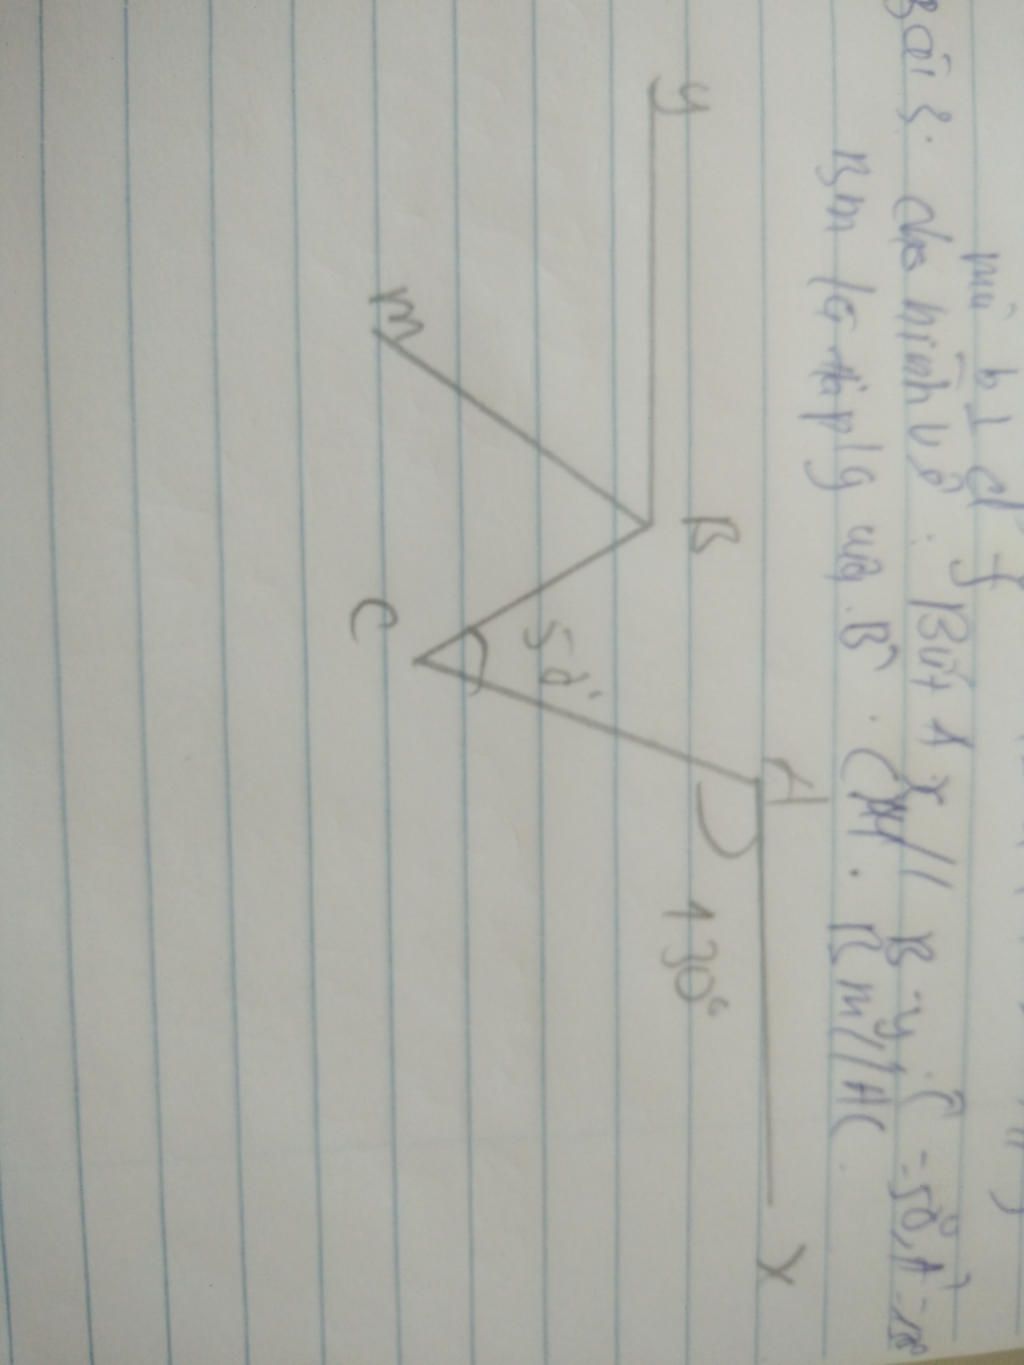 mà b ⊥ d
Bài 3. Cho hình vẽ. Biết Ax // By. Ĉ = 50°, Â = 130°
Bm là tia plg của B̂. CM. Bm // AC.
y
B
A
x
m
C
50°
130°